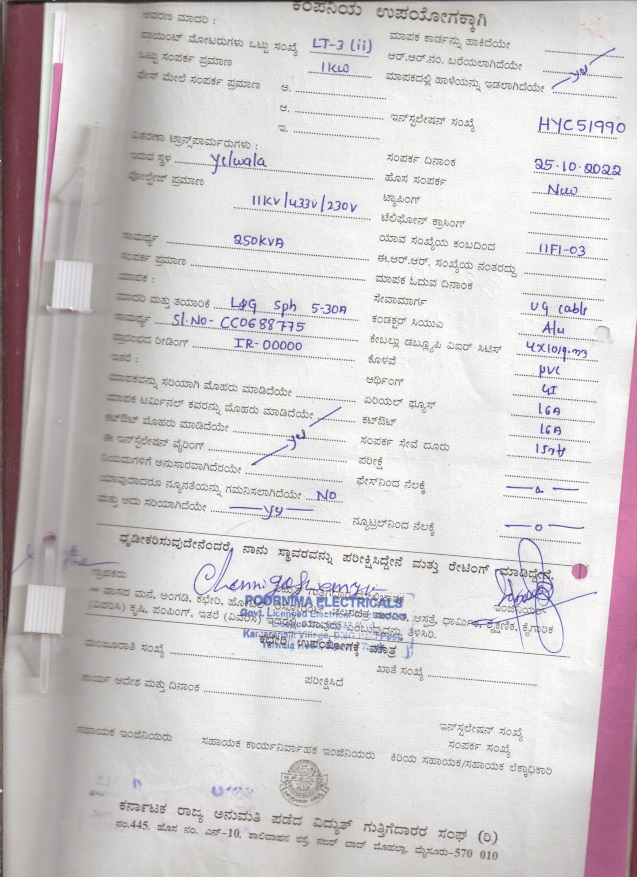 ಕಂಪನಿಯ ಉಪಯೋಗಕ್ಕಾಗಿ
ಆವರಣ ಮಾದರಿ :
ಪಾಯಿಂಟ್ ಮೋಟರುಗಳು ಒಟ್ಟು ಸಂಖ್ಯೆ LT-3 (ii) ಮಾಪಕ ಕಾರ್ಡನ್ನು ಹಾಕಿದೆಯೇ
ಒಟ್ಟು ಸಂಪರ್ಕ ಪ್ರಮಾಣ 1KW ಆರ್.ಆರ್.ನಂ. ಬರೆಯಲಾಗಿದೆಯೇ
ಫೇಸ್ ಮೇಲೆ ಸಂಪರ್ಕ ಪ್ರಮಾಣ ಅ. ಮಾಪಕದಲ್ಲಿ ಹಾಳೆಯನ್ನು ಇಡಲಾಗಿದೆಯೇ yes
ಆ.
ಇ. ಇನ್‌ಸ್ಟಲೇಷನ್ ಸಂಖ್ಯೆ HYC51990
ವಿತರಣಾ ಟ್ರಾನ್ಸ್‌ಫಾರ್ಮರುಗಳು :
ಇರುವ ಸ್ಥಳ yelwala ಸಂಪರ್ಕ ದಿನಾಂಕ 25.10.2022
ವೋಲ್ಟೇಜ್ ಪ್ರಮಾಣ 11KV/433V/230V ಹೊಸ ಸಂಪರ್ಕ New
ಟ್ಯಾಪಿಂಗ್
ಟೆಲಿಫೋನ್ ಕ್ರಾಸಿಂಗ್
ಸಾಮರ್ಥ್ಯ 250KVA ಯಾವ ಸಂಖ್ಯೆಯ ಕಂಬದಿಂದ 11F1-03
ಸಂಪರ್ಕ ಪ್ರಮಾಣ ಈ.ಆರ್.ಆರ್. ಸಂಖ್ಯೆಯ ನಂತರದ್ದು
ಮಾಪಕ : ಮಾಪಕ ಓದುವ ದಿನಾಂಕ
ಮಾದರಿ ಮತ್ತು ತಯಾರಿಕೆ L&G Sph 5-30A ಸೇವಾಮಾರ್ಗ UG cable
ಸಾಮರ್ಥ್ಯ Sl.No- CC0688775 ಕಂಡಕ್ಟರ್ ಸಿಯುಎ Alu
ಪ್ರಾರಂಭದ ರೀಡಿಂಗ್ IR-00000 ಕೇಬಲ್ಲು ಡಬ್ಲ್ಯೂಪಿ ಎಐರ್ ಸಿಟಿಸ್
ಇತರೆ : ಕೊಳವೆ pvc
ಮಾಪಕವನ್ನು ಸರಿಯಾಗಿ ಮೊಹರು ಮಾಡಿದೆಯೇ ಆರ್ಥಿಂಗ್ GI
ಮಾಪಕ ಟರ್ಮಿನಲ್ ಕವರನ್ನು ಮೊಹರು ಮಾಡಿದೆಯೇ ಏರಿಯಲ್ ಫ್ಯೂಸ್ 16A
ಕಟ್‌ಔಟ್ ಮೊಹರು ಮಾಡಿದೆಯೇ yes ಕಟ್‌ಔಟ್ 16A
ಈ ಇನ್‌ಸ್ಟಲೇಷನ್ ವೈರಿಂಗ್ ಸಂಪರ್ಕ ಸೇವೆ ದೂರು
ನಿಯಮಗಳಿಗೆ ಅನುಸಾರವಾಗಿದೆರಯೇ ಪರೀಕ್ಷೆ
ಯಾವುದಾದರೂ ನ್ಯೂನತೆಯನ್ನು ಗಮನಿಸಲಾಗಿದೆಯೇ NO ಫೇಸ್‌ನಿಂದ ನೆಲಕ್ಕೆ
ಮತ್ತು ಅದು ಸರಿಯಾಗಿದೆಯೇ ನ್ಯೂಟ್ರಲ್‌ನಿಂದ ನೆಲಕ್ಕೆ
ಧೃಡೀಕರಿಸುವುದೇನೆಂದರೆ, ನಾನು ಸ್ಥಾವರವನ್ನು ಪರೀಕ್ಷಿಸಿದ್ದೇನೆ ಮತ್ತು ರೇಟಿಂಗ್ ಮಾಡಿದ್ದೇನೆ.
ಗ್ರಾಹಕರು ಇಂಜಿನಿಯರ್
POORNIMA ELECTRICALS
Govt. Licensed Electrical
** ವಾಸದ ಮನೆ, ಅಂಗಡಿ, ಕಛೇರಿ, ಆಸ್ಪತ್ರೆ, ಧಾರ್ಮಿಕ, ಶೈಕ್ಷಣಿಕ, ಕೈಗಾರಿಕ
(ವಿವರಿಸಿ) ಕೃಷಿ, ಪಂಪಿಂಗ್, ಇತರೆ (ವಿವರಿಸಿ) ತಿಳಿಸಿರಿ.
ಕಛೇರಿ ಉಪಯೋಗಕ್ಕೆ ಮಾತ್ರ
ಮಂಜೂರಾತಿ ಸಂಖ್ಯೆ ಖಾತೆ ಸಂಖ್ಯೆ
ಕಾರ್ಯ ಆದೇಶ ಮತ್ತು ದಿನಾಂಕ ಪರೀಕ್ಷಿಸಿದೆ
ಇನ್‌ಸ್ಟಲೇಷನ್ ಸಂಖ್ಯೆ
ಸಂಪರ್ಕ ಸಂಖ್ಯೆ
ಸಹಾಯಕ ಇಂಜಿನಿಯರು ಸಹಾಯಕ ಕಾರ್ಯನಿರ್ವಾಹಕ ಇಂಜಿನಿಯರು ಕಿರಿಯ ಸಹಾಯಕ/ಸಹಾಯಕ ಲೆಕ್ಕಾಧಿಕಾರಿ
ಕರ್ನಾಟಕ ರಾಜ್ಯ ಅನುಮತಿ ಪಡೆದ ವಿದ್ಯುತ್ ಗುತ್ತಿಗೆದಾರರ ಸಂಘ (ರಿ)
ನಂ.445, ಹೊಸ ನಂ. ಎನ್-10, ಶಾಲಿವಾಹನ ರಸ್ತೆ, ನಜರ್ ಬಾದ್ ಮೊಹಲ್ಲಾ, ಮೈಸೂರು-570 010